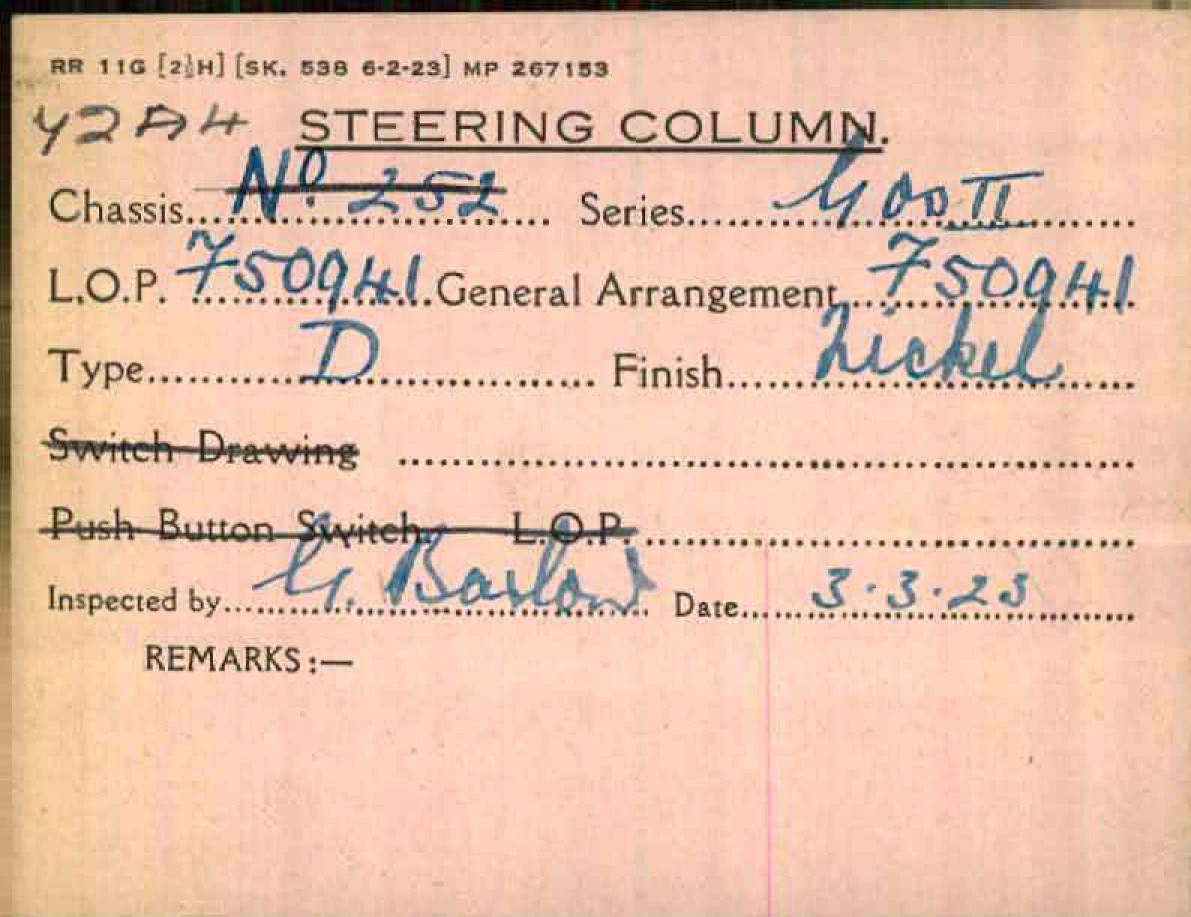 RR 11G [2½H] [SK. 538 6-2-23] MP 267153
42A4 STEERING COLUMN.
Chassis... No. 252 ... Series... Goo II ...
L.O.P. 750941 General Arrangement... 750941
Type... D ... Finish... Nickel ...
Switch Drawing ...
Push Button Switch. L.O.P. ...
Inspected by... G. Barlow ... Date... 3.3.23 ...
REMARKS:—